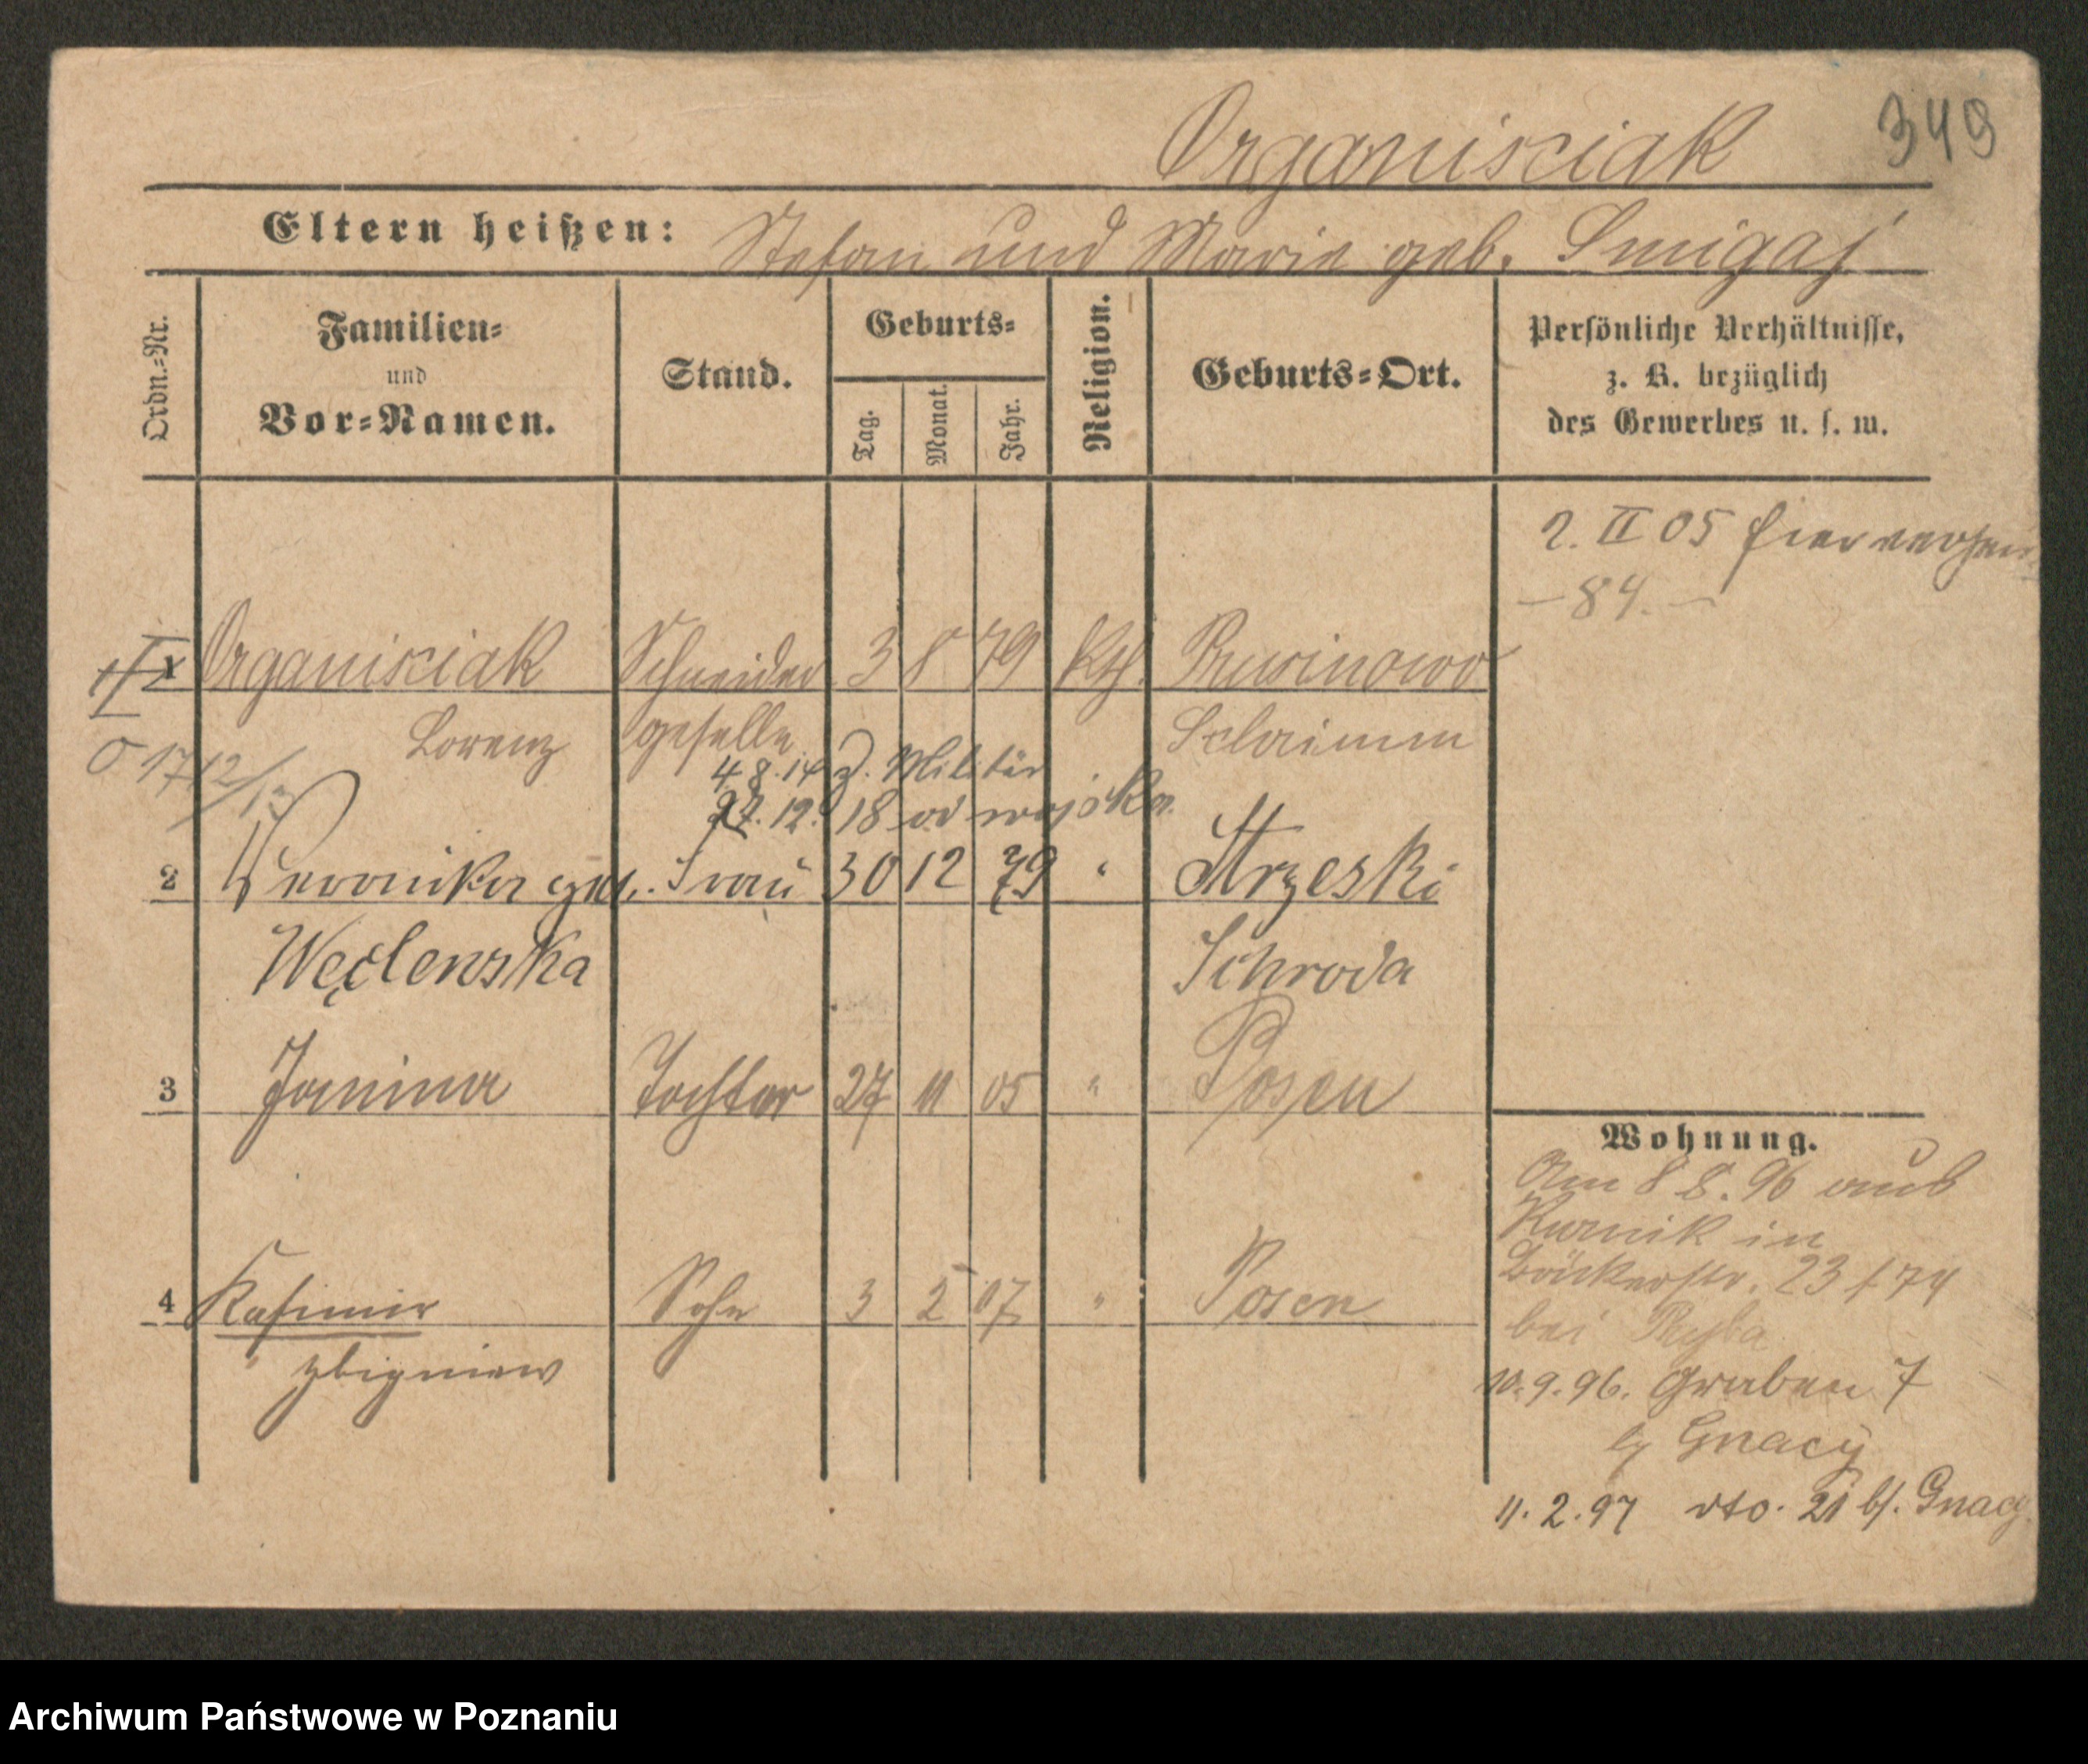 Organisciak 349
Eltern heißen: Stefan und Marie geb. Smigaj
Ordn.-Nr.
Familien-
und
Vor-Namen.
Stand.
Geburts-
Tag.
Monat.
Jahr.
Religion.
Geburts-Ort.
Persönliche Verhältnisse,
z. B. bezüglich
des Gewerbes u. s. w.
2. II 05 hier
— 84. —
1 Organisciak Schneider 3 8 79 Kth. Pruсinowo
Lorenz geselle Schrimm
4.8.14 z. Militär
27.12. 18 od wojska
17/12/13
2 Veronika geb. Frau 30 12 79 " Strzeski
Węclewska Schroda
3 Janina Tochter 27 11 05 " Posen
Wohnung.
Am 8 8. 96 aus
Kurnik in
Bäckerstr. 23 / 74
4 Kasimir Sohn 3 2 07 " Posen
bei Ryba
" Zbigniew
10.9.96. Graben 7
b/ Gnacy
11.2.97 dto. 21 b/. Gnacy
Archiwum Państwowe w Poznaniu